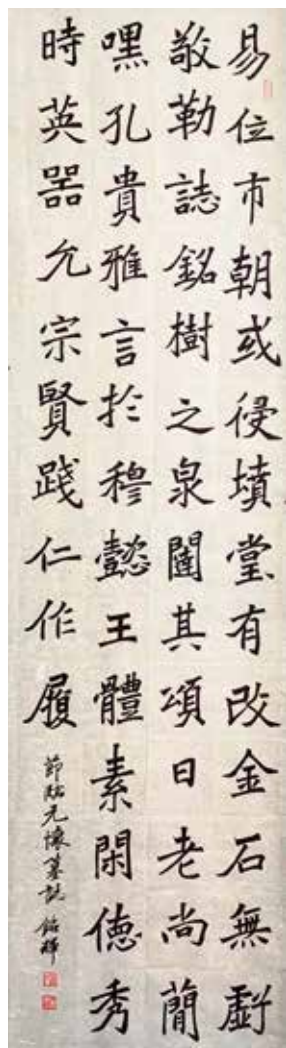 易位市朝或侵墳堂有改金石無虧
敬勒誌銘樹之泉闥其頌曰老尚簡
嘿孔貴雅言於穆懿王體素閑德秀
時英器允宗賢踐仁作履
節臨元懷墓誌 銘輝